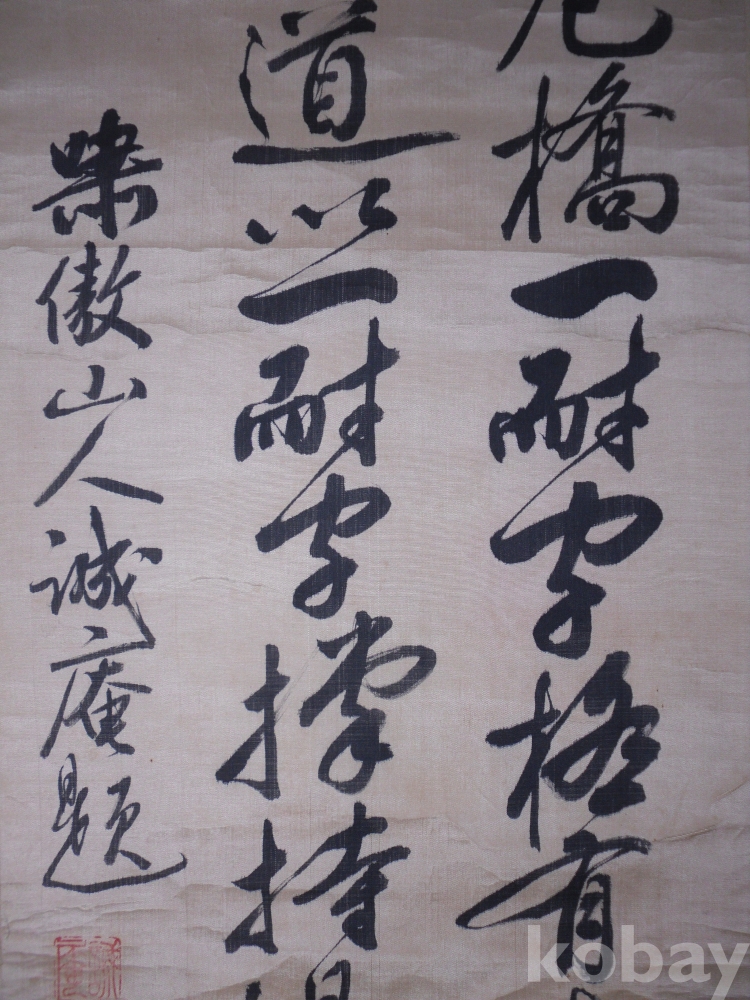 橋一耐字極有
道以一耐字撑持
傲山人誠庵題
kobay